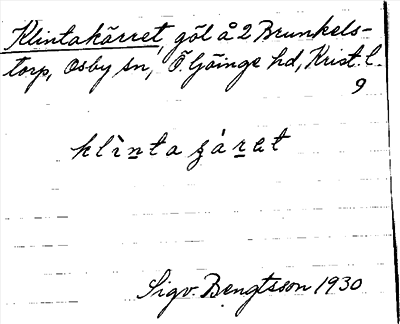 Klintakärret, göl å 2 Brunkels-
torp, Osby sn, Ö. Göinge hd, Krist. l.
9
klìnta
Sigv. Bengtsson 1930